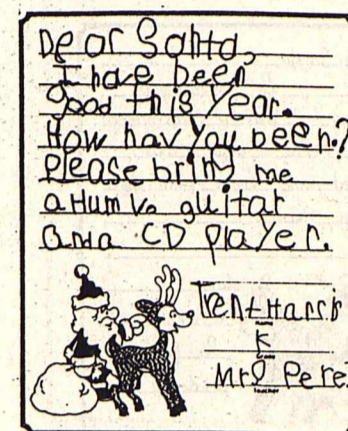 Dear Santa,
I have been
good this year.
How hav you been?
Please bring me
a Hum V. guitar
and a CD player.
Trent Harris
name
K
grade
Mrs Perez
teacher